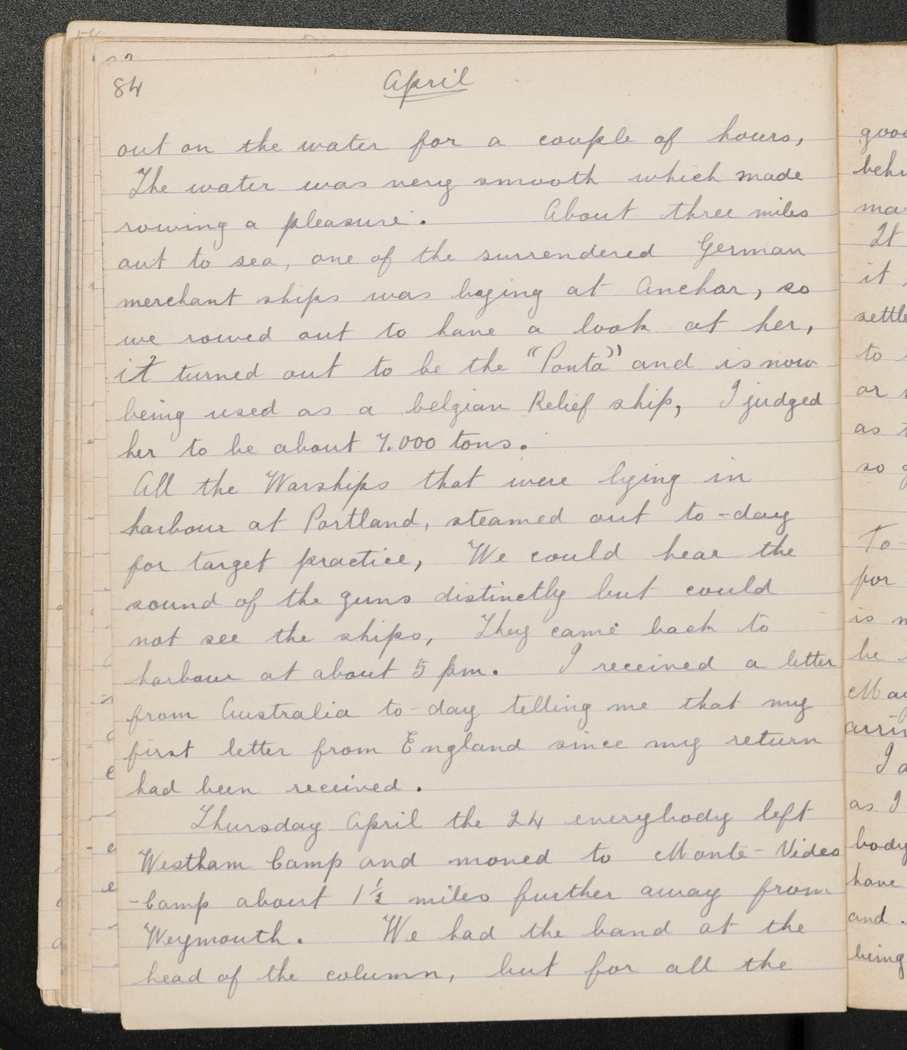 84
April
out on the water for a couple of hours,
The water was very smooth which made
rowing a pleasure. About three miles
out to sea, one of the surrendered German
merchant ships was laying at anchor, so
we rowed out to have a look at her,
it turned out to be the "Ponta" and is now
being used as a belgian Relief ship, I judged
her to be about 7.000 tons.
All the Warships that were lying in
harbour at Portland, steamed out to-day
for target practice, We could hear the
sound of the guns distinctly but could
not see the ships, They came back to
harbour at about 5 pm. I received a letter
from Australia to-day telling me that my
first letter from England since my return
had been received.
Thursday April the 24 everybody left
Westham Camp and moved to Monte-Video
-Camp about 1½ miles further away from
Weymouth. We had the band at the
head of the column, but for all the
good
It
it
settle
to
or
as
so
To-
for
is
be
May
I
as I
body
have
and
being